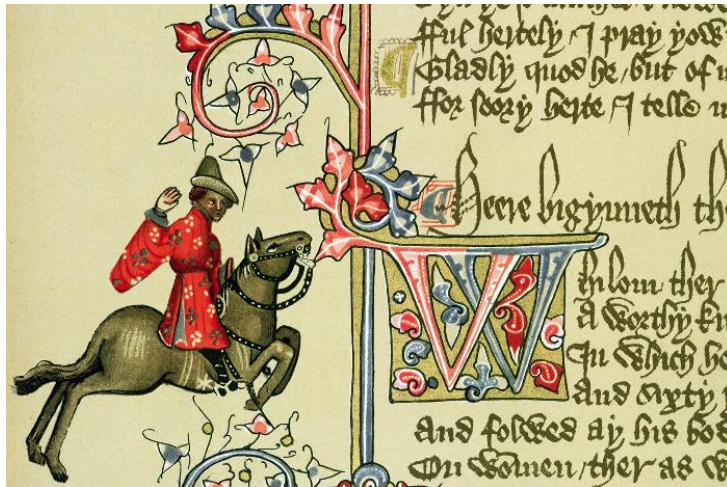 fful hertely / I pray yow
Gladly quod he / but of
ffor soory herte / I telle
Heere bigynneth
Whilom ther
A worthy
In which
And sixty
And folwed ay his
On wommen / ther as